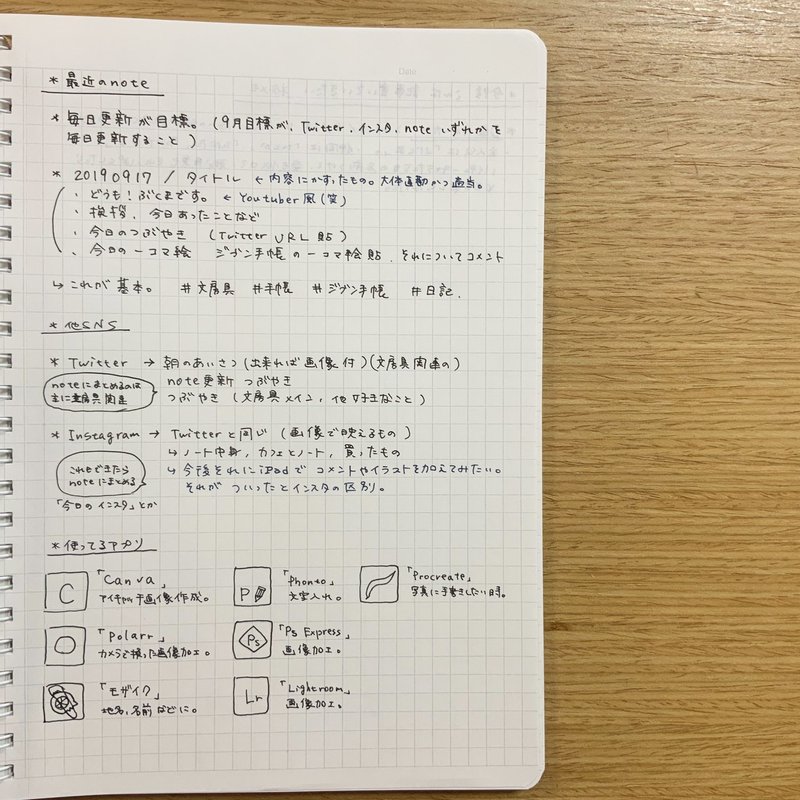 Date
*最近のnote
*毎日更新が目標。(9月目標が、Twitter、インスタ、noteいずれかを
毎日更新すること)
*20190917/タイトル ←内容にかすったもの。大体直勘かつ適当。
・どうも!ぶくまです。←Youtuber風(笑)
・挨拶、今日あったことなど
・今日のつぶやき (Twitter URL貼)
・今日の一コマ絵 ジブン手帳の一コマ絵貼、それについてコメント
↳これが基本。 #文房具 #手帳 #ジブン手帳 #日記、
*他SNS
*Twitter→朝のあいさつ(出来れば画像付)(文房具関連の)
note更新つぶやき
つぶやき(文房具メイン、他好きなこと)
noteにまとめるのは
主に文房具関連
*Instagram→Twitterと同じ(画像で映えるもの)
↳ノート中身、カフェとノート、買ったもの
↳今後それにiPadでコメントやイラストを加えてみたい。
それがついったとインスタの区別。
これもできたら
noteにまとめる
「今日のインスタ」とか
*使ってるアプリ
C 「Canva」
アイキャッチ画像作成。
P 「Phonto」
文字入れ。
「Procreate」
写真に手書きしたい時。
「Polarr」
カメラで撮った画像加工。
Ps 「Ps Express」
画像加工。
「モザイク」
地名、名前などに。
Lr 「Lightroom」
画像加工。